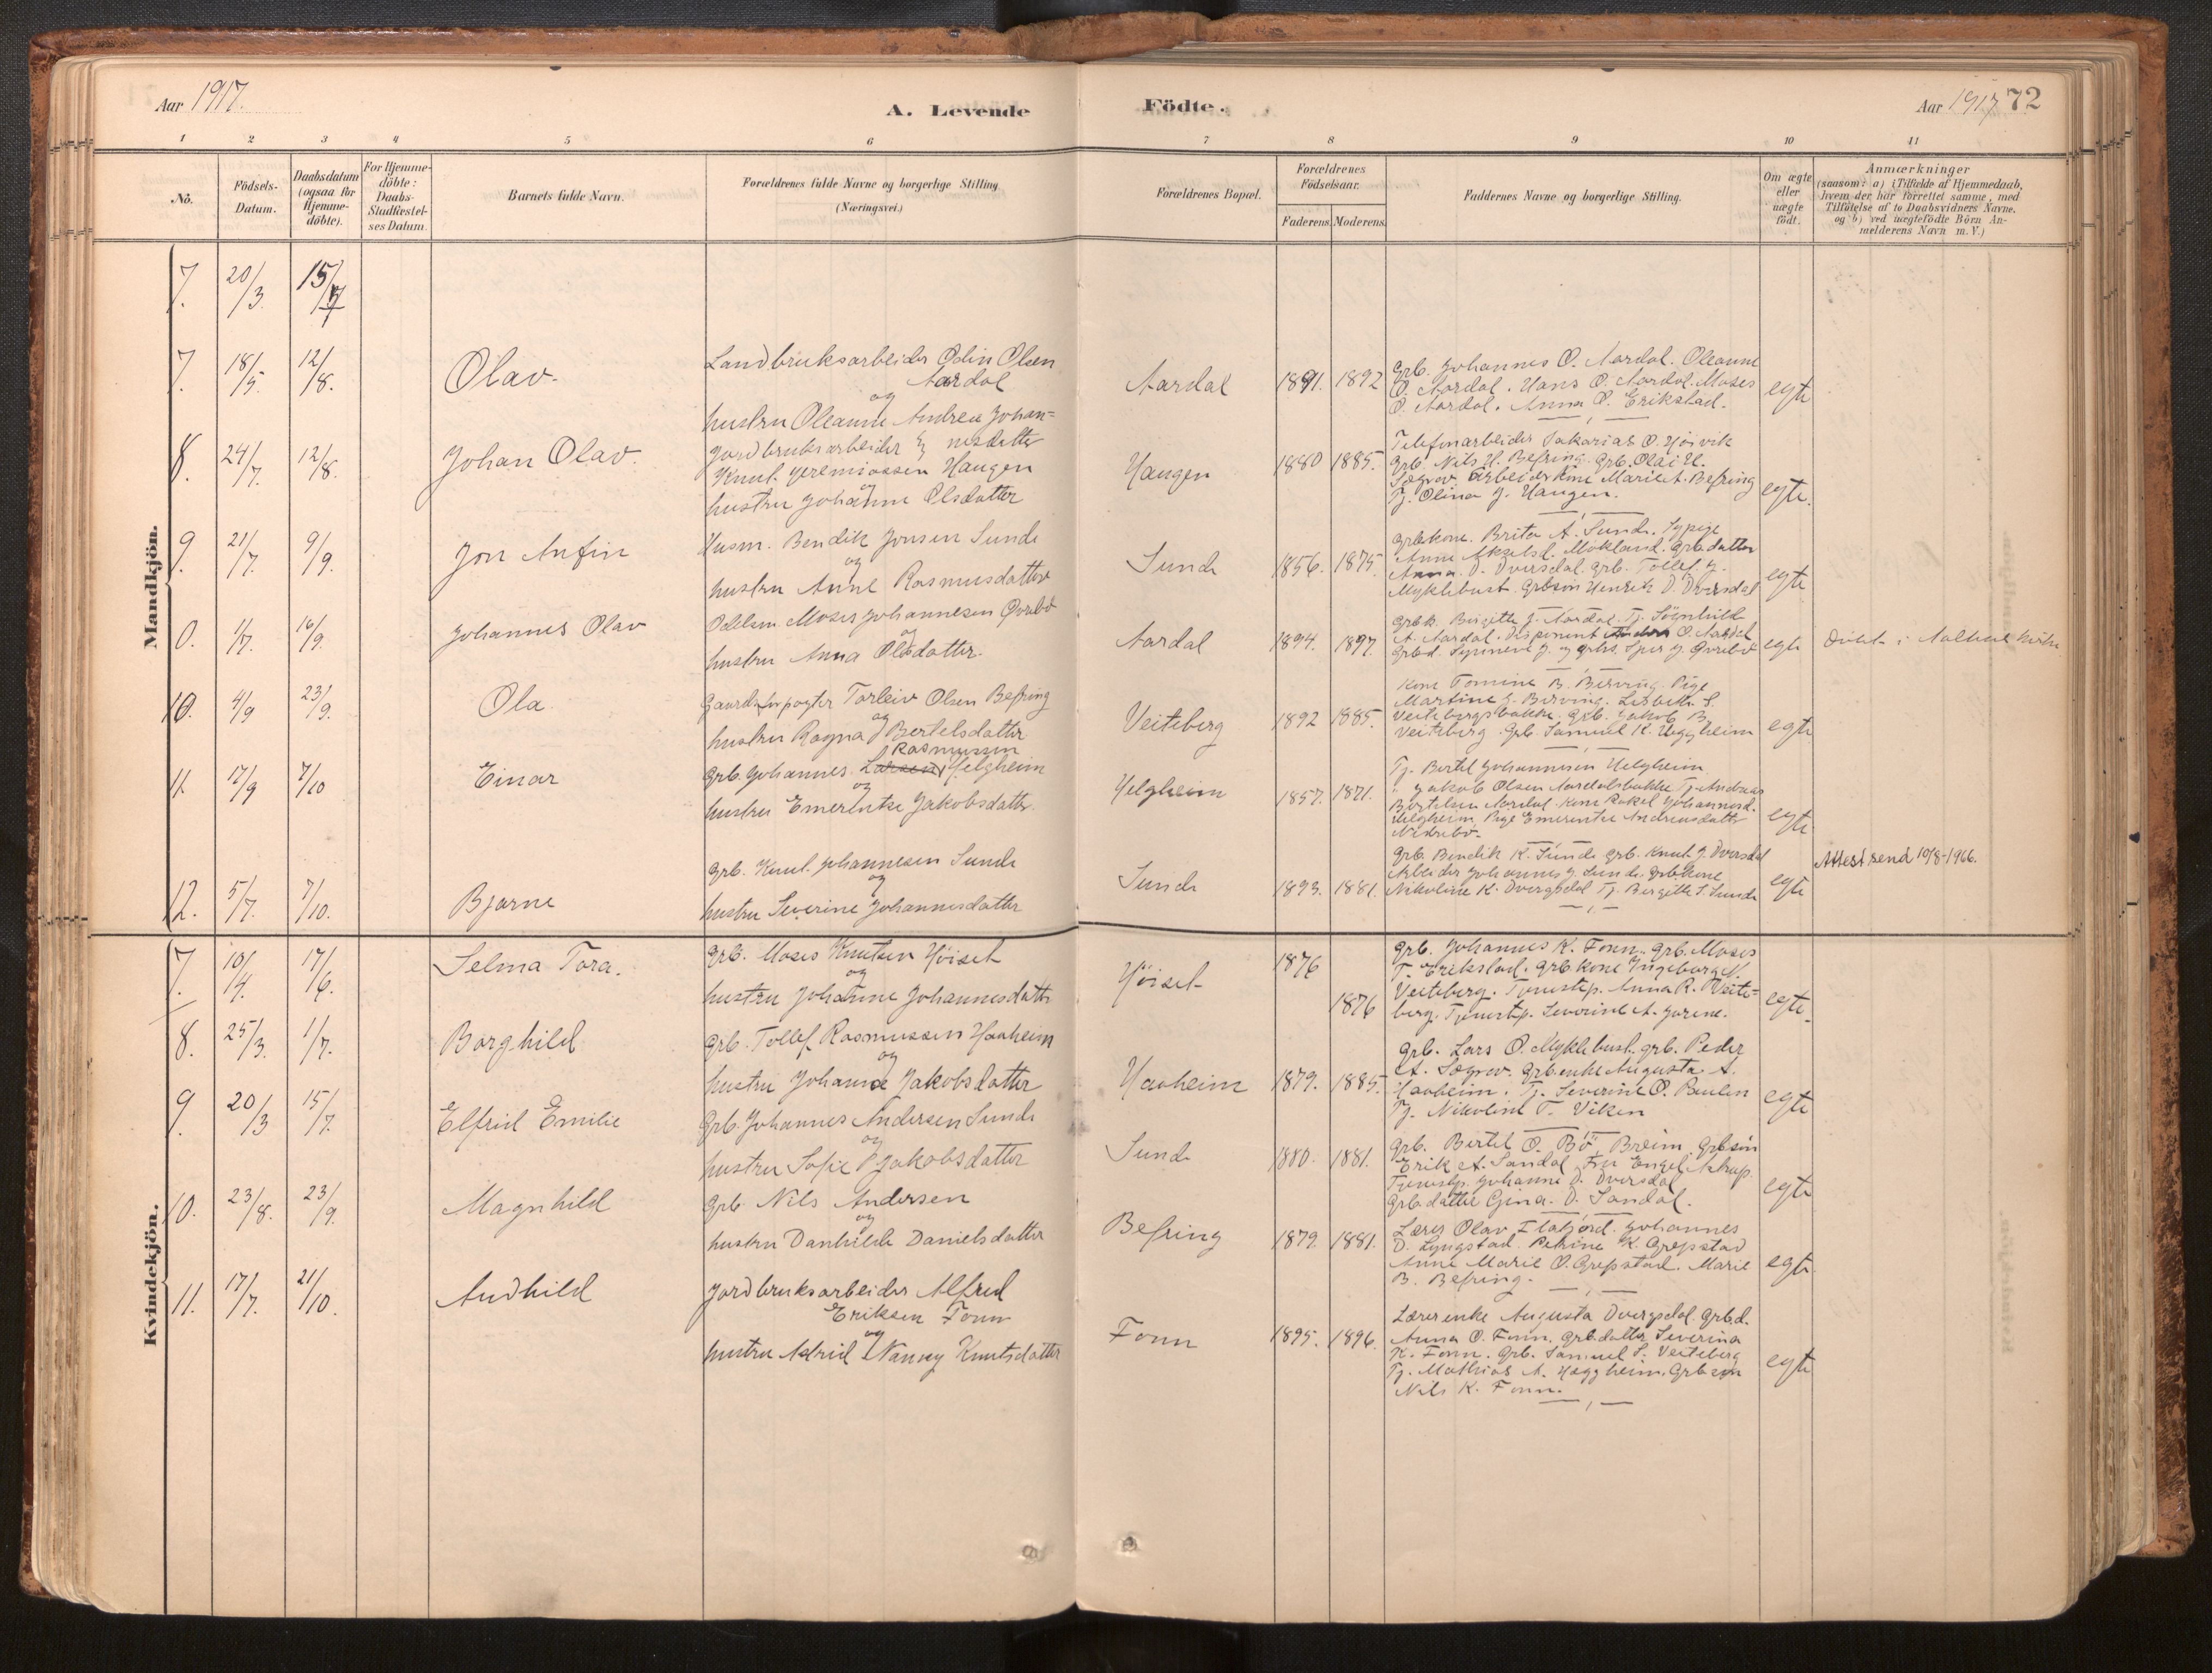 Aar 1917.
A. Levende
Födte.
Aar 1917 72
1 2 3 4 5 6 7 8 9 10 11
No.
Födsels-
Datum.
Daabsdatum
(ogsaa for
Hjemme-
döbte).
For Hjemme-
döbte:
Daabs-
Stadfæstel-
ses Datum.
Barnets fulde Navn.
Forældrenes fulde Navne og borgerlige Stilling
(Næringsvei.)
Forældrenes Bopæl.
Forældrenes
Födselsaar.
Faderens. Moderens.
Faddernes Navne og borgerlige Stilling.
Om ægte
eller
uægte
födt.
Anmærkninger
(saasom: a) i Tilfælde af Hjemmedaab,
hvem der har forrettet samme, med
Tilföielse af to Daabsvidners Navne,
og b) ved uægtefödte Börn An-
melderens Navn m. V.)
Mandkjön.
7. 20/3. 15/7
7. 18/5. 12/8. Olav.
Landbruksarbeider Odin Olsen
Aardal
og
hustru Oleanne Andrea Johan=
nesdatter
Aardal 1891. 1892
Grb. Johannes O. Aardal. Oleanne
O. Aardal. Hans O. Aardal. Moses
O. Aardal. Anna O. Erikstad.
egte
8. 24/7. 12/8. Johan Olav.
Jordbruksarbeider
Knut Jeremiassen Haugen
og
hustru Johanne Olsdatter
Haugen 1880 1885.
Telefonarbeider Sakarias O. Höivik
Grb. Nils H. Befring. Grb. Olai H.
Sægrov. Arbeiderkone Marie A. Befring
Tj. Olina J. Haugen.
egte.
9. 21/7. 9/9. Jon Anfin
Husm. Bendik Jonsen Sunde
og
hustru Anne Rasmusdatter
Sunde 1856. 1875
Grbkone. Brita A. Sunde. Sypige
Anne Akselsd. Mökland. Grbdatter
Anna D. Dversdal. Grb. Tollef J.
Myklebust. Grbsön Henrik D. Dversdal
egte
0. 1/7. 16/9. Johannes Olav
Odelsm. Moses Johannesen Övrebö
og
hustru Anna Olsdatter.
Aardal 1894. 1897
Grbk. Birgitte J. Aardal. Tj.
A. Aardal. Disponent Anders O. Aardal
Grbd. Synneve J. og grbs. J. Övrebö
egte
Döbt i Aalhus kirke
10. 4/9 23/9. Ola
Gaardsforpagter Torleiv Olsen Befring
og
hustru Ragna Bertelsdatter
Veiteberg 1892 1885.
Kone Tomine B. Berving. Pige
Martine J. Berving. Lisbeth S.
Veitebergsbakke. Grb. Jakob B.
Veiteberg. Grb. Samuel K. Hegheim
egte
11. 17/9 7/10 Einar
Rasmussen
Grb. Johannes Larsen Helgheim
og
hustru Emerentse Jakobsdatter
Helgheim 1857. 1871.
Tj. Bertel Johannesen Helgheim
" Jakob Olsen Aardalsbakke Tj. Andreas
Bertelsen Aardal. Kone Rakel Johannesd.
Helgheim, Pige Emerentse Andreasdatter
Nedrebö.
egte
12. 5/7. 7/10. Bjarne
Grb. Knut Johannesen Sunde
og
hustru Severine Johannesdatter
Sunde 1893. 1881.
Grb. Bendik K. Sunde grb. Knut J. Dversdal
Arbeider Johannes J. Sunde. Grbkone
Nikoline K. Dvergsdal Tj. Birgitte S. Sunde
egte
Attest send 10/8-1966.
Kvindekjön.
7. 10/4. 17/6. Selma Tora.
Grb. Moses Knutsen Höiset
og
hustru Johanne Johannesdatter
Höiset 1876
1876
Grb. Johannes K. Fonn. Grb. Moses
T. Erikstad. Grbkone Ingeborg N.
Veiteberg. Tjenestp. Anna R. Veite=
berg. Tjenestp. Severine A. Jarene.
egte
8. 25/3. 1/7. Borghild
Grb. Tollef Rasmussen Haaheim
og
hustru Johanne Jakobsdatter
Haaheim 1879. 1885.
Grb. Lars O. Myklebust. grb. Peder
A. Sægrov. Grb.enke Augusta A.
Haaheim. Tj. Severine O. Paulen
Tj. Nikoline T. Viken
egte
9. 20/3 15/7. Elfrid Emilie
Grb. Johannes Andersen Sunde
og
hustru Sofie Jakobsdatter
Sunde 1880. 1881.
Grb. Bertel O. Bö Breim. Grbsön
Erik A. Sandal, Fru Engel Astrup.
Tjenestp. Johanne D. Dversdal
Grbdatter Gina. D. Sandal.
egte
10. 23/8. 23/9. Magnhild
Grb. Nils Andersen
og
hustru Danhilde Danielsdatter
Befring 1879. 1881.
Lærer Olav Flatjord. Johannes
D. Lyngstad. Petrine K. Grepstad
Anne Marie O. Grepstad. Marie
B. Befring.
egte.
11. 17/7. 21/10. Audhild
Jordbruksarbeider Alfred
Eriksen Fonn
og
hustru Astrid Nanvy Knutsdatter
Fonn 1895. 1896.
Lærerenke Augusta Dvergsdal. Grbd.
Anna O. Fonn. Grb.datter Severina
K. Fonn. Grb. Samuel S. Veiteberg
Tj. Mathias A. Heggheim. Grbsön
Nils K. Fonn.
egte